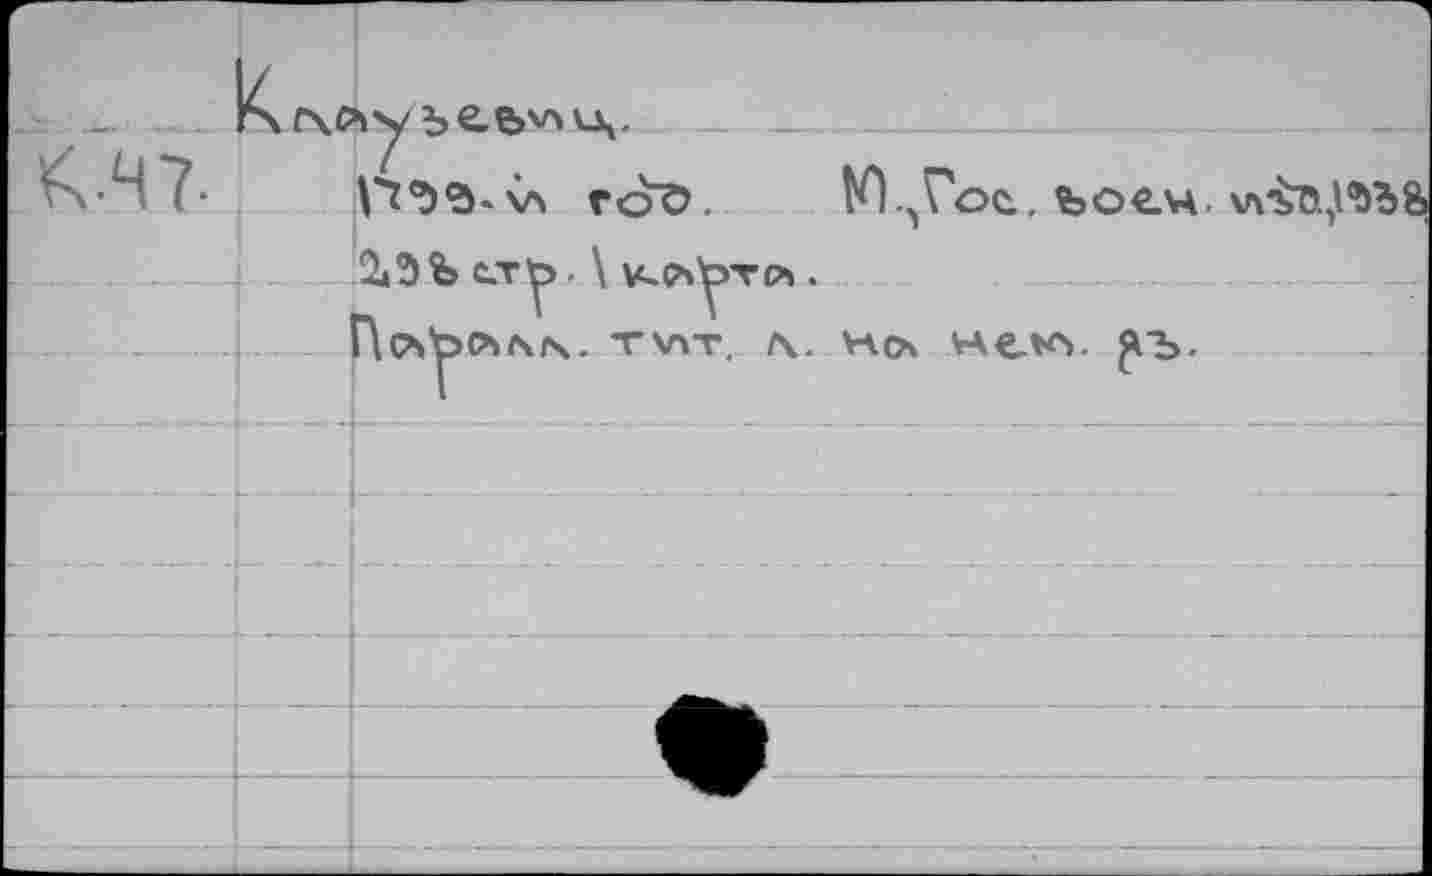 Клаузевиц.
К.47. 1799-й год. М., Гос. воен. изд., 1938,
293 стр. 1 карта.
Паралл. тит. л. на нем. яз.